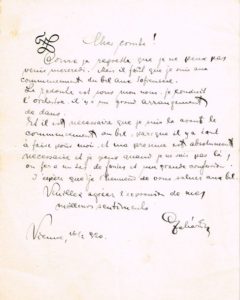 Cher comte!
je regrette que je ne peux pas
venir mercredi. Mais il faut que je sois au
commencement du bal aux Sofiensäle.
La redoute est sous mon nom. je conduit
l'orchestre. Il y a un grand arrangement
de danse.
Et il est nécessaire que je suis là avant le
commencement du bal, parce que il y a tant
à faire pour moi, et ma présence est absolument
nécessaire et je peux quand je ne suis pas là,
on fera un tas de et une grande confusion.
J'espère que j'ai l'honneur de vous saluer au bal.
Veuillez agréer l'expression de mes
meilleurs sentiments
Vienne, 920.